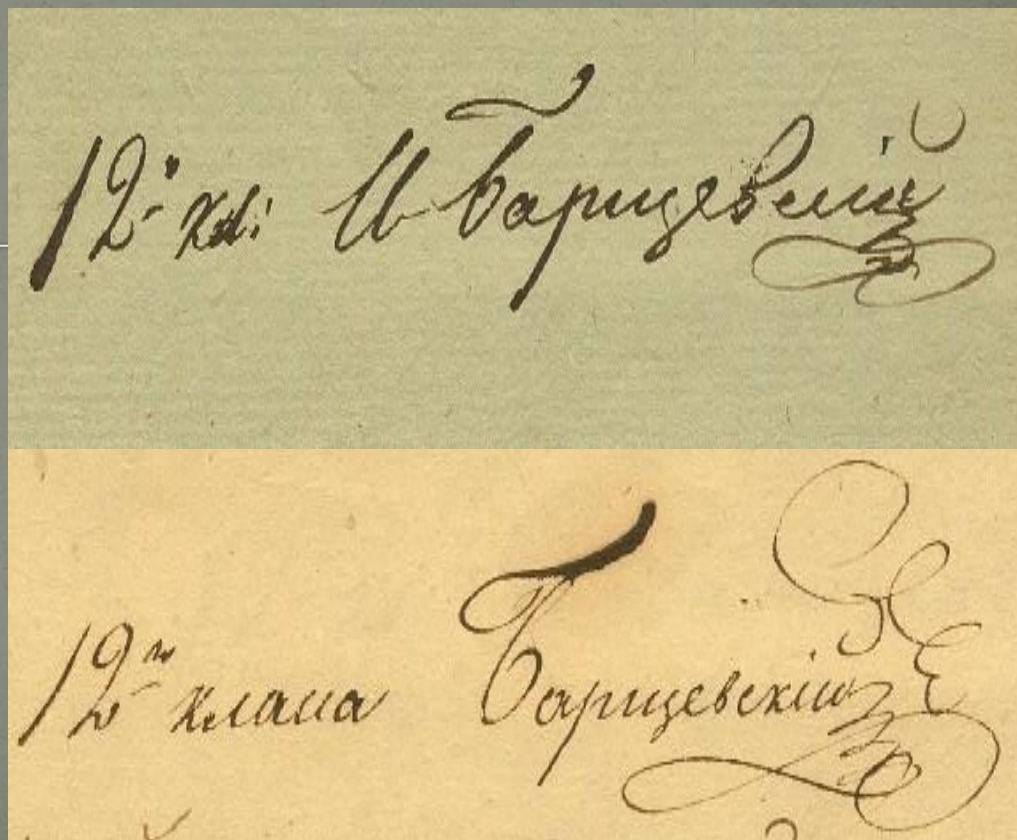 12го кл: И Барщевскій
12го класса Барщевскій